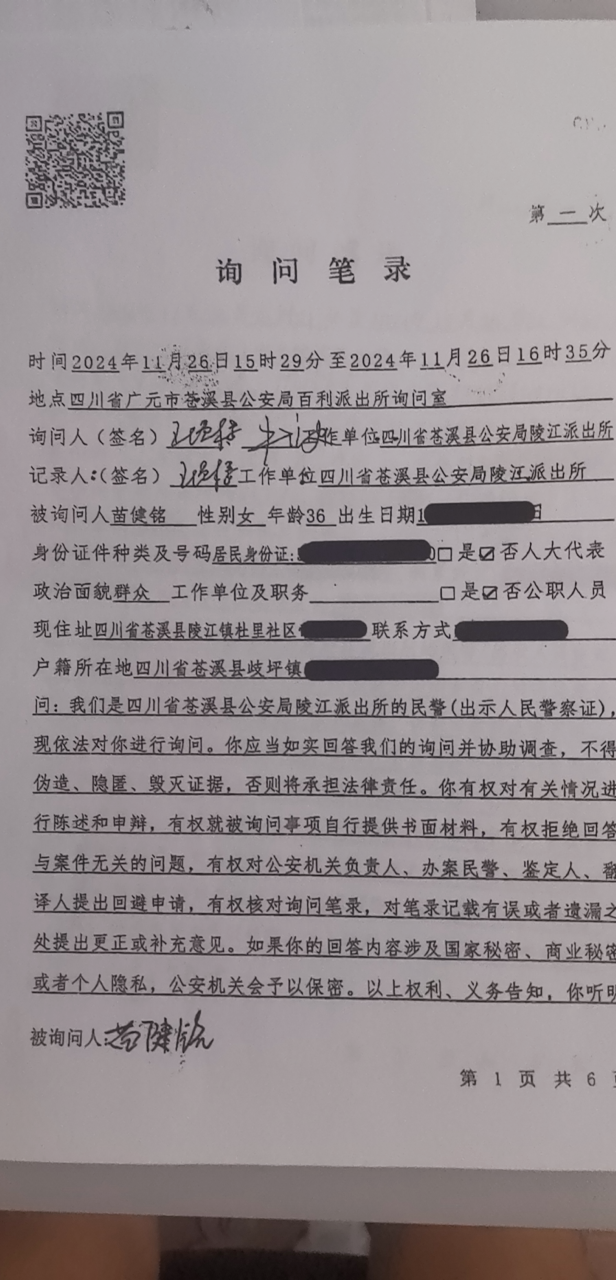 第一次
询问笔录
时间2024年11月26日15时29分至2024年11月26日16时35分
地点四川省广元市苍溪县公安局百利派出所询问室
询问人（签名） 作单位四川省苍溪县公安局陵江派出所
记录人：（签名） 工作单位四川省苍溪县公安局陵江派出所
被询问人苗健铭 性别女 年龄36 出生日期1 日
身份证件种类及号码居民身份证: □是☑否人大代表
政治面貌群众 工作单位及职务 □是☑否公职人员
现住址四川省苍溪县陵江镇杜里社区 联系方式
户籍所在地四川省苍溪县歧坪镇
问：我们是四川省苍溪县公安局陵江派出所的民警(出示人民警察证)，
现依法对你进行询问。你应当如实回答我们的询问并协助调查，不得
伪造、隐匿、毁灭证据，否则将承担法律责任。你有权对有关情况进
行陈述和申辩，有权就被询问事项自行提供书面材料，有权拒绝回答
与案件无关的问题，有权对公安机关负责人、办案民警、鉴定人、翻
译人提出回避申请，有权核对询问笔录，对笔录记载有误或者遗漏之
处提出更正或补充意见。如果你的回答内容涉及国家秘密、商业秘密
或者个人隐私，公安机关会予以保密。以上权利、义务告知，你听明
被询问人:苗健铭
第 1 页 共 6 页